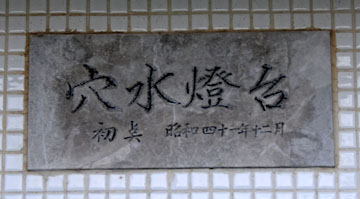 穴水燈台
初点 昭和四十一年十二月